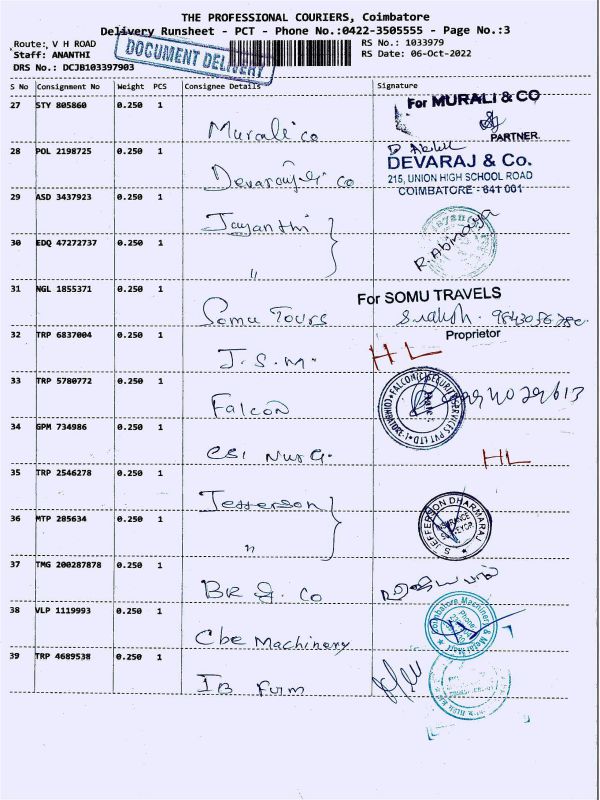 THE PROFESSIONAL COURIERS, Coimbatore
Delivery Runsheet - PCT - Phone No.:0422-3505555 - Page No.:3
Route:, V H ROAD
Staff: ANANTHI
DRS No.: DCJB103397903
DOCUMENT DELIVERY
RS No.: 1033979
RS Date: 06-Oct-2022
S No Consignment No Weight PCS Consignee Details Signature
27 STY 805860 0.250 1
Murali & Co
For MURALI & CO
PARTNER.
28 POL 2198725 0.250 1
Devaraj & Co
DEVARAJ & Co.
215, UNION HIGH SCHOOL ROAD
COIMBATORE - 641 001
29 ASD 3437923 0.250 1
Jayanthi
30 EDQ 47272737 0.250 1
"
R. Abinaya
31 NGL 1855371 0.250 1
Somu Tours
For SOMU TRAVELS
Proprietor
32 TRP 6837004 0.250 1
J.S.M.
HL
33 TRP 5780772 0.250 1
Falcon
34 GPM 734986 0.250 1
CSI Nur G.
HL
35 TRP 2546278 0.250 1
Jefferson
36 MTP 285634 0.250 1
"
S. JEFFERSON DHARMARAJ
INSURANCE
SURVEYOR
37 TMG 200287878 0.250 1
BR & Co
38 VLP 1119993 0.250 1
Cbe Machinery
Coimbatore Machinery & Metal Mart
39 TRP 4689538 0.250 1
IB Furm